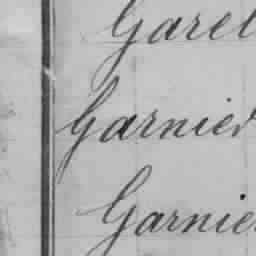 Garel
Garnier
Garnie